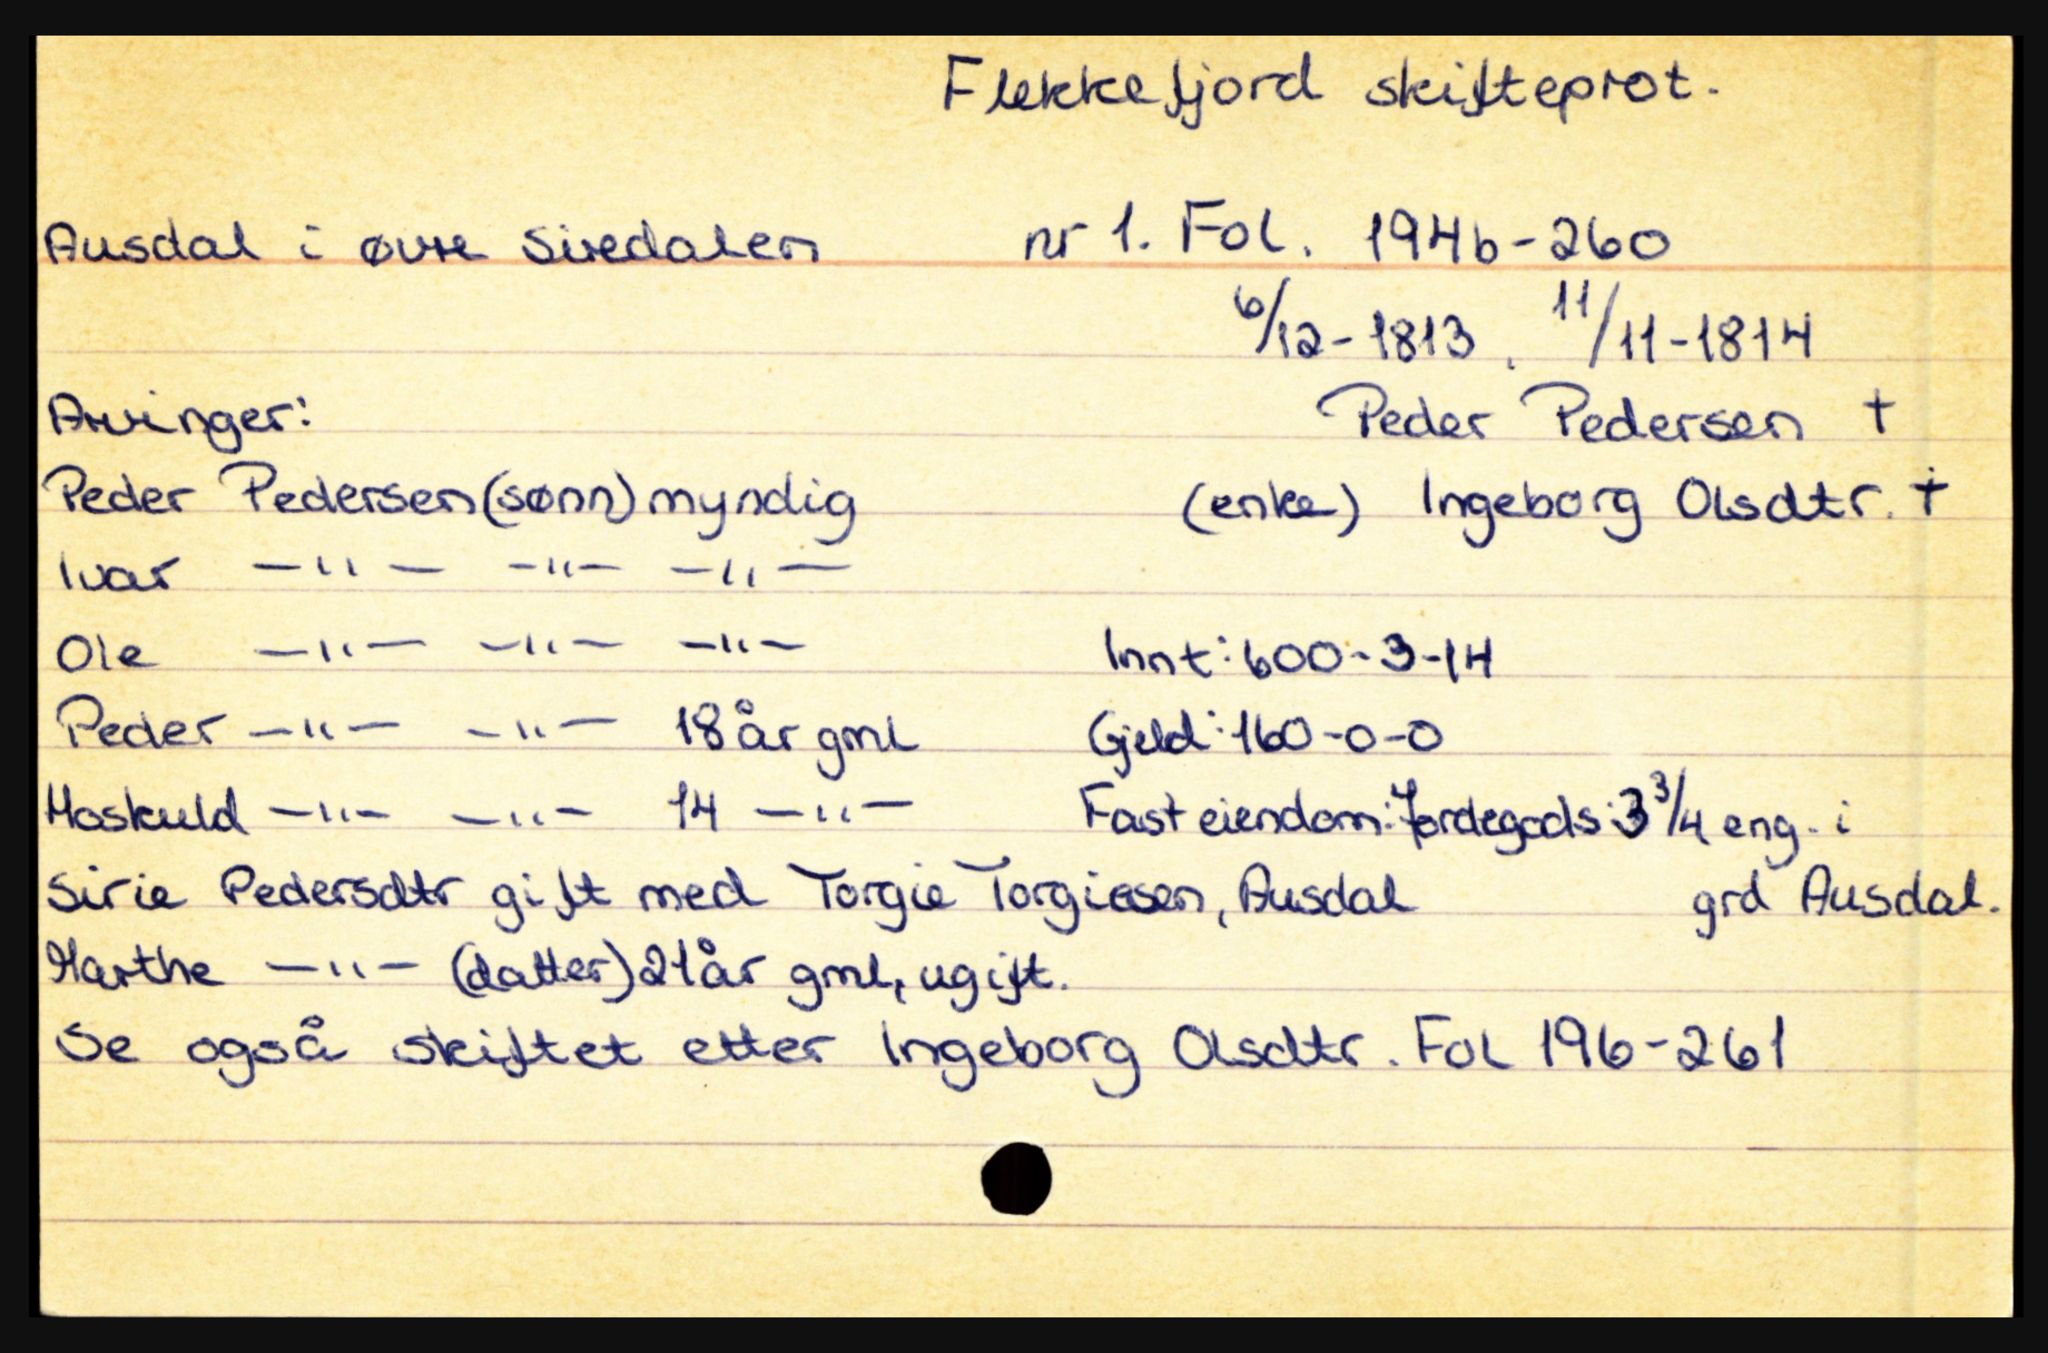 Flekkefjord skifteprot.
Ausdal i øvre Siredalen nr 1. Fol. 194b-260
6/12-1813, 11/11-1814
Arvinger: Peder Pedersen †
Peder Pedersen (sønn) myndig (enke) Ingeborg Olsdtr. †
Ivar -"- -"- -"-
Ole -"- -"- -"- Innt: 600-3-14
Peder -"- -"- 18 år gml Gjeld: 160-0-0
Hoskuld -"- -"- 14 -"- Fast eiendom: Jordegods: 3 3/4 eng. i
Sirie Pedersdtr gift med Torgie Torgiesen, Ausdal grd Ausdal.
Marthe -"- (datter) 21 år gml, ugift.
Se også skiftet etter Ingeborg Olsdtr. Fol 196-261